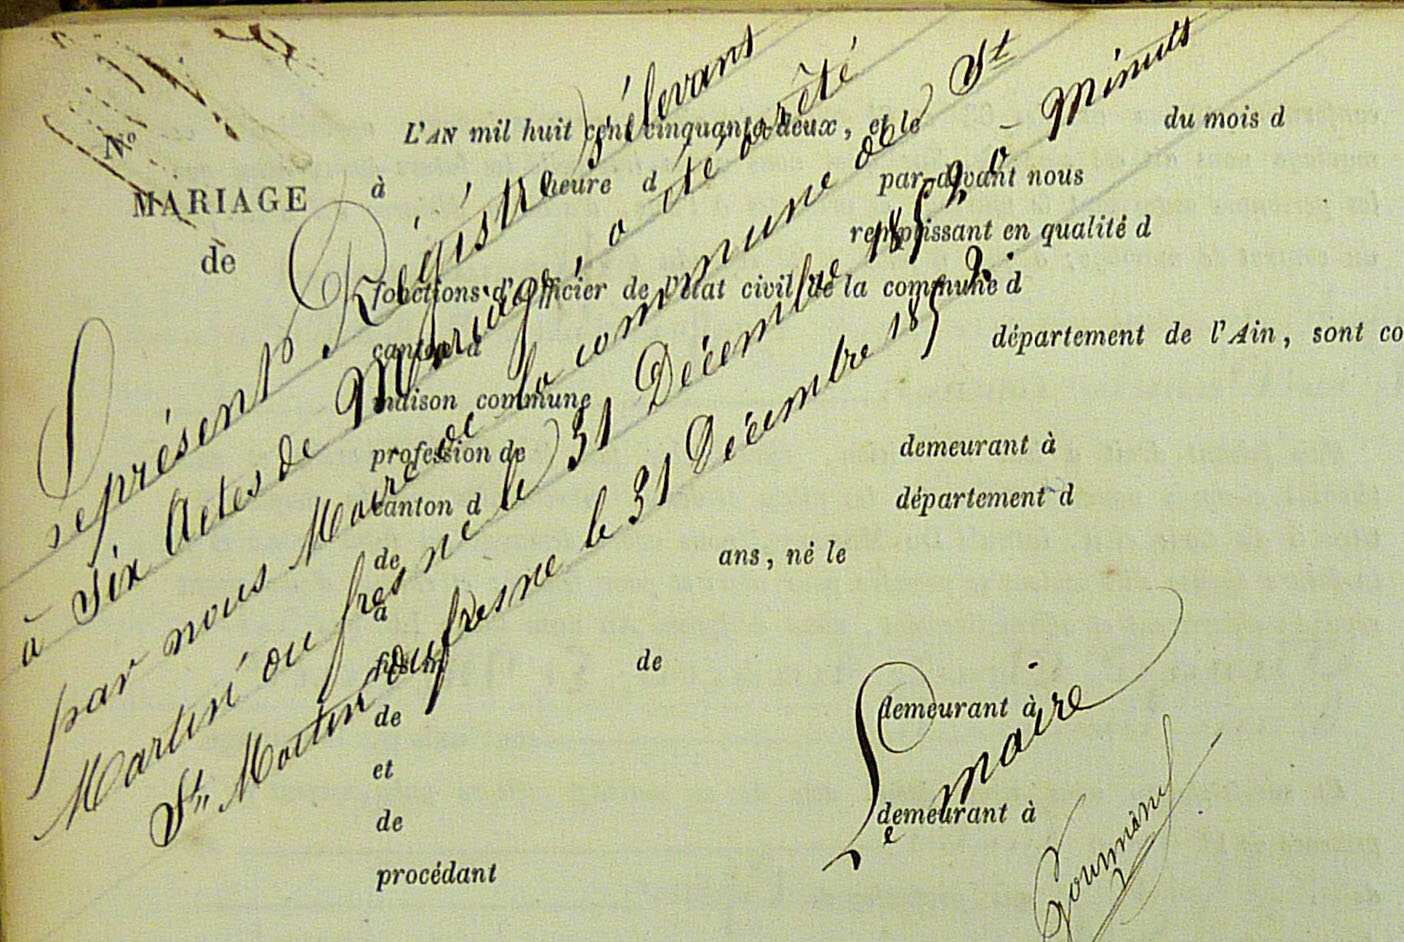 L'AN mil huit cent cinquante-deux, et le du mois d
N°
MARIAGE
de
à heure d par-devant nous
remplissant en qualité d
fonctions d'officier de l'état civil de la commune d
canton d département de l'Ain, sont co
maison commune
profession de demeurant à
canton d département d
de ans, né le
à
fils de
de demeurant à
et
de demeurant à
procédant
Le présent Régistre s'élevant
à Six Actes de Mariage a été arrêté
par nous Maire de la commune de St
Martin du fresne le 31 Décembre 1852 à Minuit
St Martin du fresne le 31 Décembre 1852.
Le maire